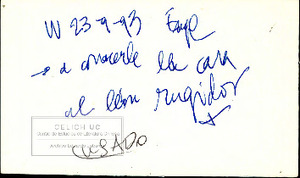 W 23-9-93
→ a conocerle la cara
al león rugidor
x
CELICH UC
USADO